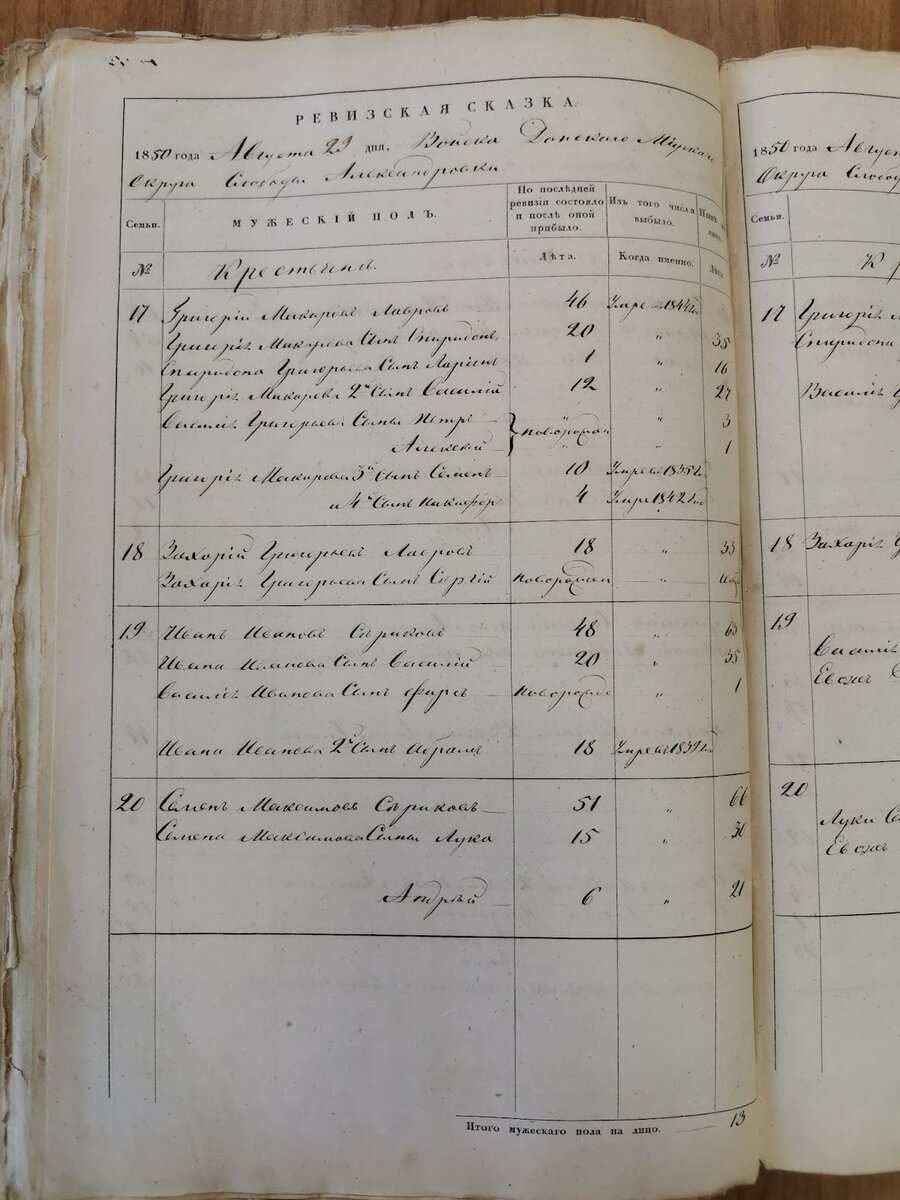 РЕВИЗСКАЯ СКАЗКА.
1850 года Августа 29 дня, Войска Донскаго Міускаго
Округа Слободы Александровки
Семьи. МУЖЕСКІЙ ПОЛЪ. По послѣдней ревизіи состояло и послѣ оной прибыло. Изъ того числа выбыло. лицо.
№ Крестьянъ. Лѣта. Когда именно. Лѣта.
17 Григорій Макаровъ Лавровъ 46 Умре въ 1844 год
Григорія Макарова Сынъ Спиридонъ 20 " 35
Спиридона Григорьева Сынъ Ларіонъ 1 " 16
Григорія Макарова 2й Сынъ Василій 12 " 27
Василія Григорьева Сыны Петръ новорожден " 3
Алексей " " 1
Григорія Макарова 3й Сынъ Семенъ 10 Умре въ 1835 год
и 4й Сынъ Никифоръ 4 Умре 1842 год
18 Захорій Григорьевъ Лавровъ 18 " 33
Захорія Григорьева Сынъ Сергій новорожден "
19 Иванъ Ивановъ Сѣриковъ 48 " 63
Ивана Иванова Сынъ Василій 20 " 35
Василія Иванова Сынъ Фирсъ новорожден " 1
Ивана Иванова 2й Сынъ Абрамъ 18 Умре въ 1839 год
20 Семенъ Максимовъ Сѣриковъ 51 " 66
Семена Максимова Сыны Лука 15 " 30
Андрѣй 6 " 21
Итого мужескаго пола на лицо. 13
1850 года Август
Округа Слобо
Семьи.
№ К р
17 Григорія
Спиридона
Василія
18 Захорія
19
Василія
Евож
20
Луки
Евож